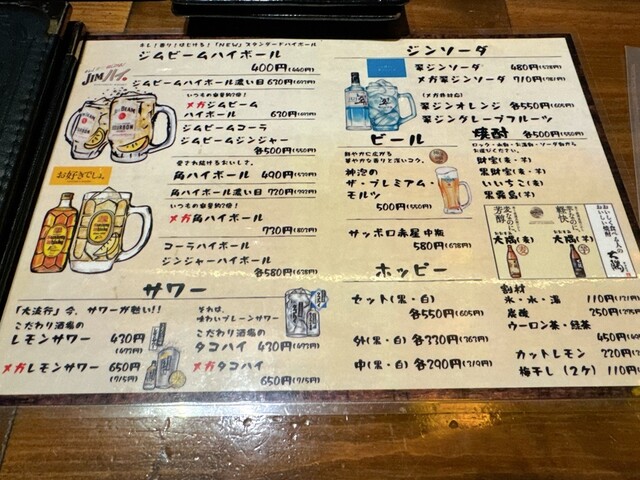 キレ!香り!はじける!「NEW」スタンダードハイボール
ジムビームハイボール
400円(440円)
JIMハイ。
ジムビームハイボール濃い目 620円(682円)
いつもの容量約2倍!
メガジムビーム
ハイボール 630円(693円)
ジムビームコーラ
ジムビームジンジャー
各500円(550円)
お好きでしょ。
愛され続けるおいしさ。
角ハイボール 490円(539円)
角ハイボール濃い目 720円(792円)
いつもの容量約2倍!
メガ角ハイボール
730円(803円)
コーラハイボール
ジンジャーハイボール
各580円(638円)
サワー
「大流行」今、サワーが熱い!!
こだわり酒場の
レモンサワー 430円
(473円)
メガレモンサワー 650円
(715円)
それは、
味わいプレーンサワー
こだわり酒場の
タコハイ 430円(473円)
メガタコハイ
650円(715円)
ジンソーダ
翠ジンソーダ 480円(528円)
メガ翠ジンソーダ 710円(781円)
(メガ対応)
翠ジンオレンジ 各550円(605円)
翠ジングレープフルーツ
ビール
鮮やかに広がる
華やかな香りと深いコク。
神泡の
ザ・プレミアム・
モルツ
500円(550円)
サッポロ赤星 中瓶
580円(638円)
焼酎 各500円(550円)
ロック・水割・お湯割・ソーダ割から
お選びください。
財宝(麦・芋)
黒財宝(麦・芋)
いいちこ(麦)
黒霧島(芋)
麦なのに、芳醇
大隅(麦)
芋なのに、軽快
大隅(芋)
おいしく食べる人の
おいしい焼酎。
大隅
ホッピー
セット(黒・白)
各550円(605円)
外(黒・白) 各330円(363円)
中(黒・白) 各290円(319円)
割材
氷・水・湯 110円
炭酸 250円
ウーロン茶・緑茶
450円
カットレモン 220円
梅干し(2ケ) 110円